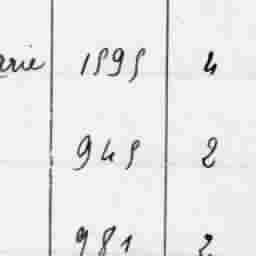 arie 1595 4
945 2
981 2